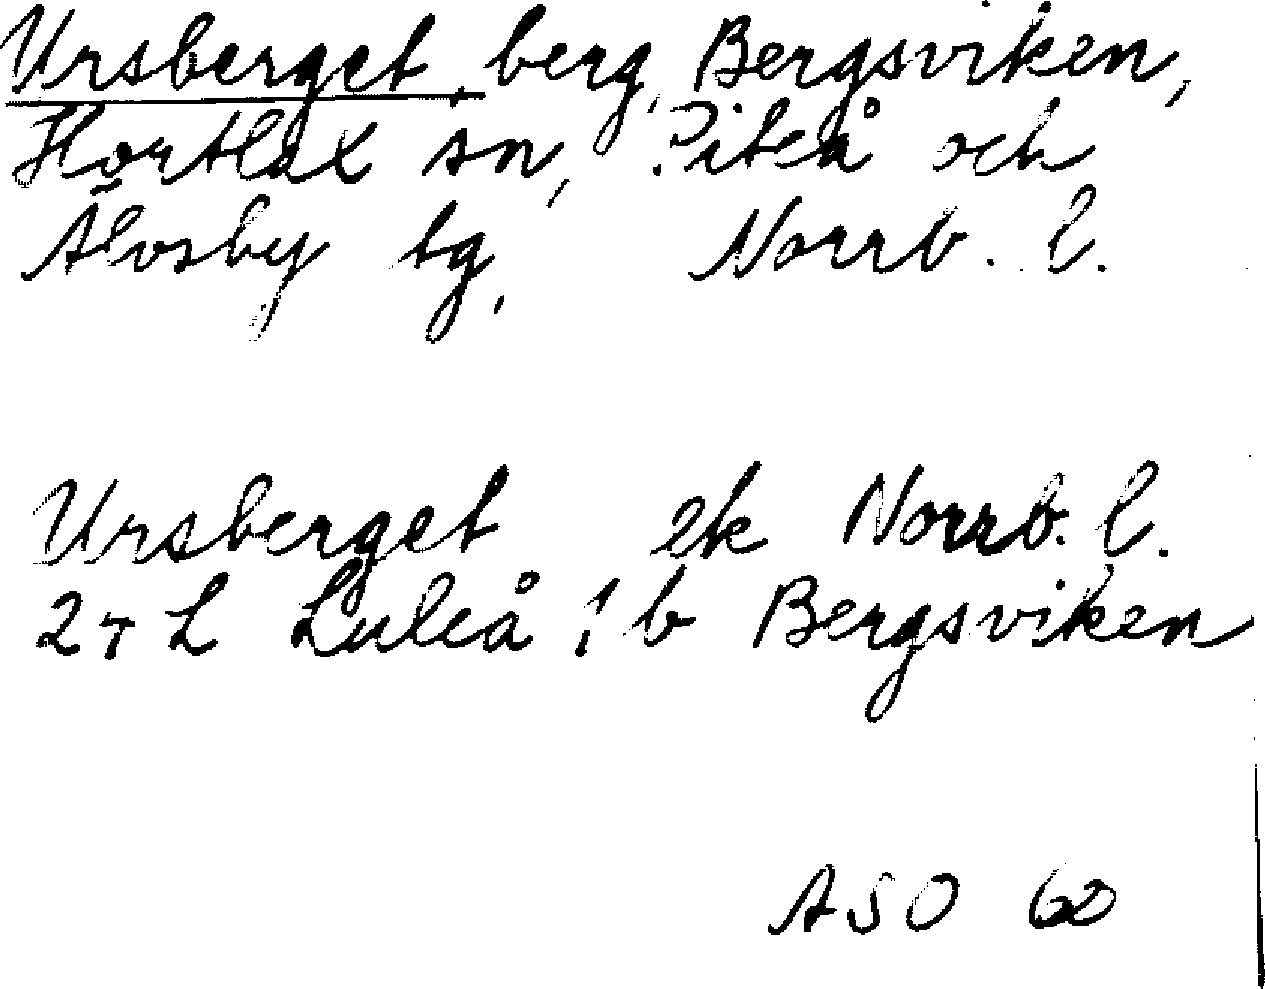 Ursberget, berg, Bergsviken,
Hortlax sn, Piteå och
Älvsby tg, Norrb. l.
Ursberget ek Norrb. l.
24 L Luleå ! b Bergsviken
ASO 60